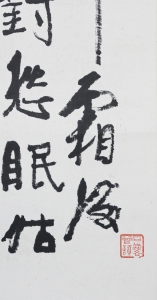 霜滿
對愁眠姑